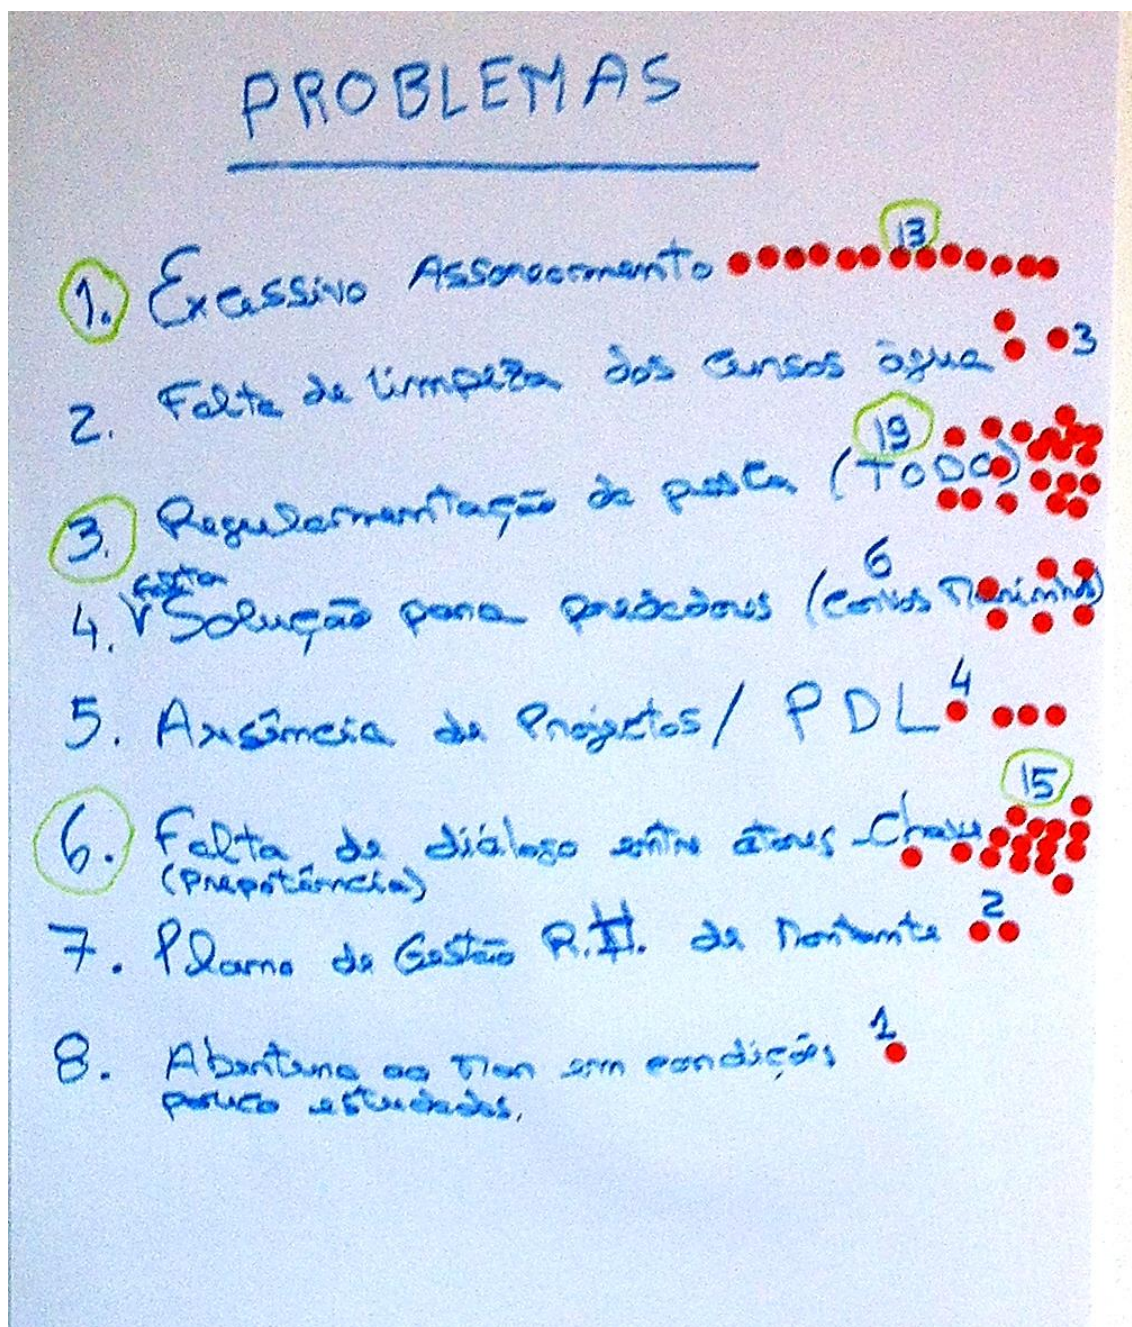 PROBLEMAS
13
1. Excessivo Assoreamento
2. Falta de limpeza dos cursos água 3
19
3. Regulamentação da pesca (TODO)
falta 6
4. V Solução para predadores (Corvos Marinhos)
5. Ausência de Projectos / PDL 4
15
6. Falta de diálogo entre atores chave
(Prepotência)
7. Plano de Gestão R.H. de Montante 2
8. Abertura ao mar em condições 1
pouco estudadas.